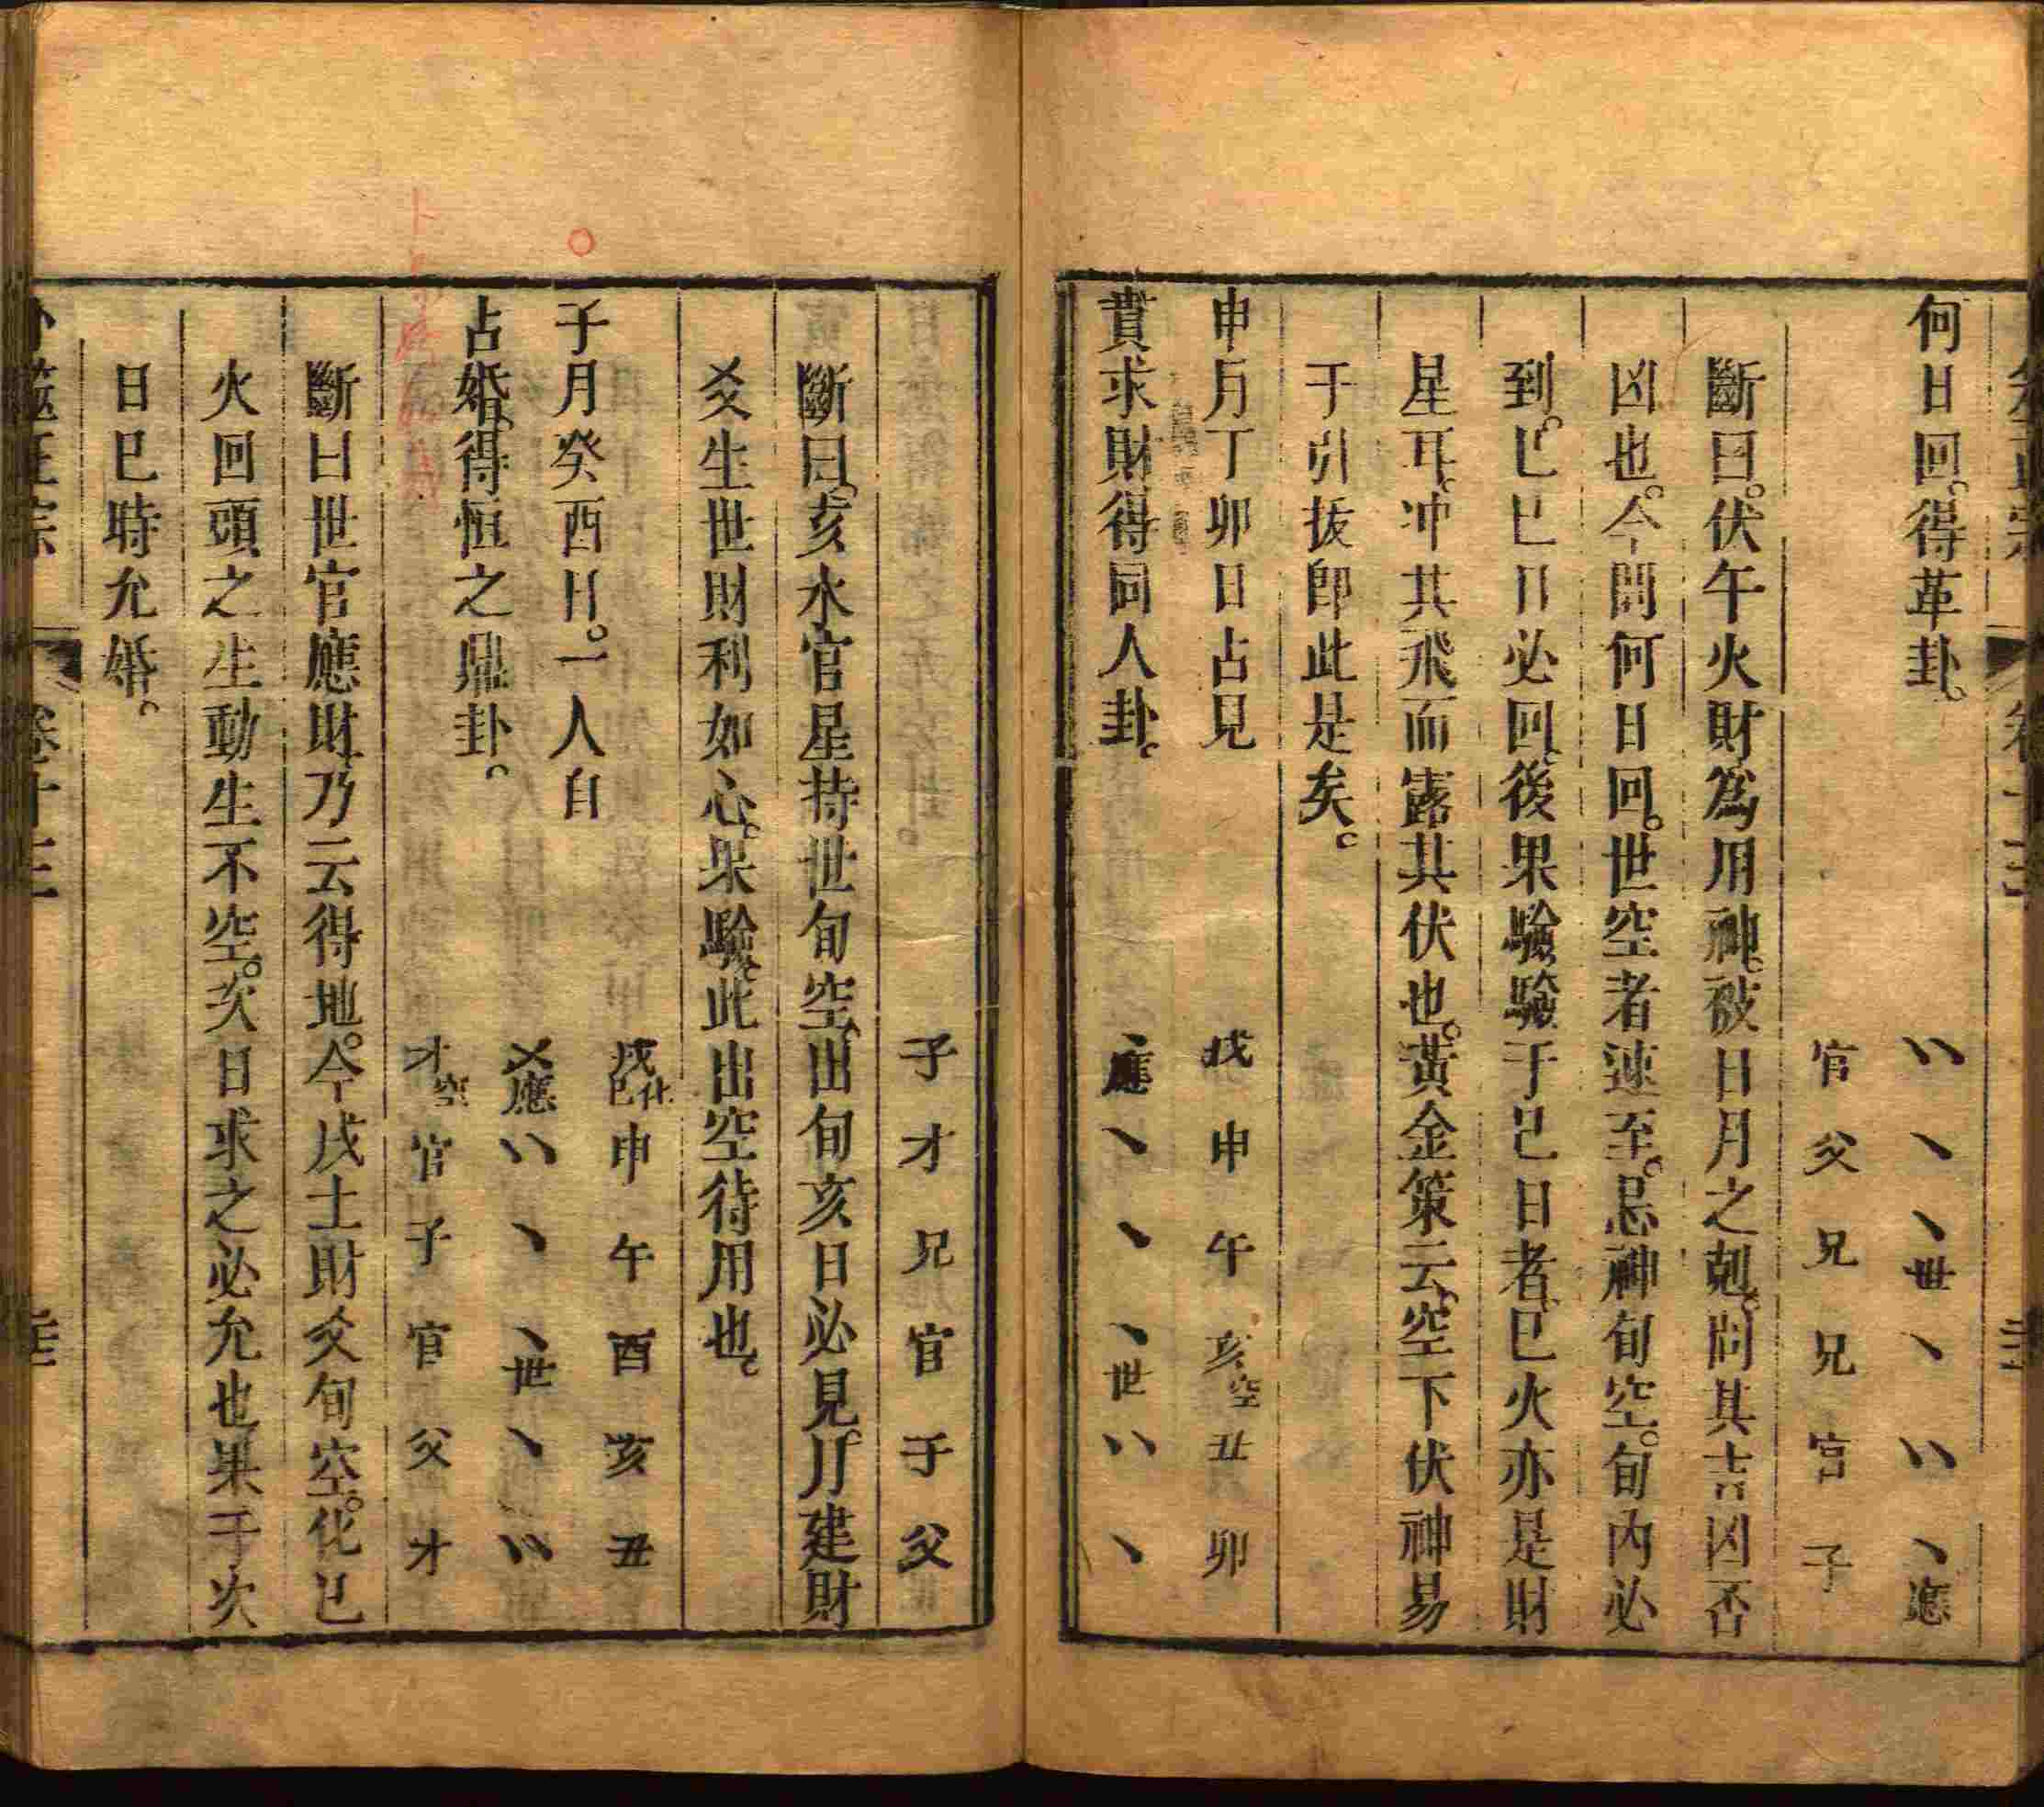 何日回。得革卦。
、、 、 、世 、 、、 、應
官 父 兄 兄 官 子
斷曰。伏午火財為用神。被日月之剋。問其吉凶否
凶也。今問何日回。世空者速至。忌神旬空。旬內必
到。已巳日必回。後果驗。驗于巳日者。巳火亦是財
星耳。冲其飛而露其伏也。黃金策云。空下伏神易
于引拔。卽此是矣。
申月丁卯日占見 戌 申 午 亥空 丑 卯
貴求財得同人卦。 、應 、 、 、世 、、 、
子 才 兄 官 子 父
斷曰。亥水官星持世旬空。出旬亥日必見。月建財
爻生世。財利如心。果驗。此出空待用也。
子月癸酉日。一人自 戌化巳 申 午 酉 亥 丑
占婚。得恒之鼎卦。 乂應 、、 、 、世 、 、、
才空 官 子 官 父 才
斷曰世官應財。乃云得地。今戌土財爻旬空。化巳
火回頭之生。動生不空。次日求之必允也。果于次
日巳時允婚。
卜筮正宗 卷十三